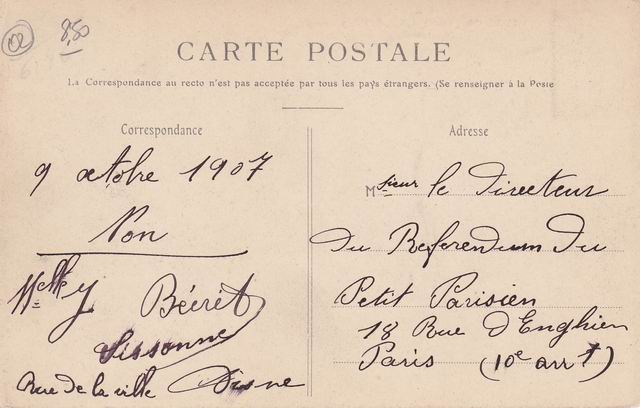 02
8,50
CARTE POSTALE
La Correspondance au recto n'est pas acceptée par tous les pays étrangers. (Se renseigner à la Poste
Correspondance
9 octobre 1907
Non
Melle Y. Bécret
Sissonne
Rue de la ville Aisne
Adresse
Msieur le Directeur
Du Referendum Du
Petit Parisien
18 Rue d'Enghien
Paris (10e arrt)